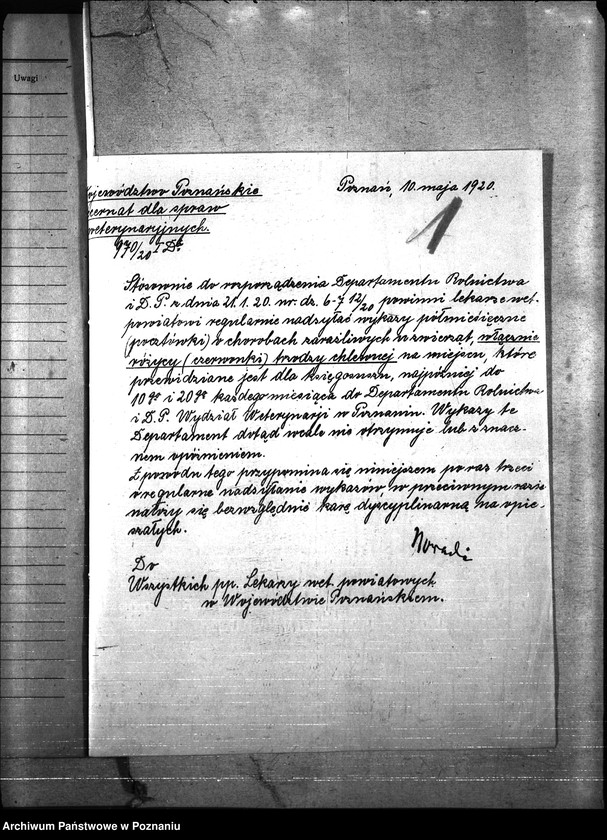 Uwagi
ojewództwo Poznańskie
Poznań, 10. maja 1920.
ernat dla spraw
weterynaryjnych.
970/20 I Dt.
1
Stosownie do rozporządzenia Departamentu Rolnictwa
i D. P. z dnia 21.1.20. nr. dz. 6-7 12/20 powinni lekarze wet.
powiatowi regularnie nadsyłać wykazy półmiesięczne
(pocztówki) o chorobach zaraźliwych u zwierząt, włącznie
różycy (czerwonki) trzody chlewnej na miejscu, które
przewidziane jest dla księgosuszu, najpóźniej do
10go i 20go każdego miesiąca do Departamentu Rolnictwa
i D. P. Wydział Weterynarji w Poznaniu. Wykazy te
Departament dotąd wcale nie otrzymuje lub z znacz-
nem opóźnieniem.
Z powodu tego przypomina się niniejszem po raz trzeci
o regularne nadsyłanie wykazów, w przeciwnym razie
nałoży się bezwzględnie karę dyscyplinarną na opie-
szałych.
Do
Wszystkich pp. Lekarzy wet. powiatowych
w Województwie Poznańskiem.
Archiwum Państwowe w Poznaniu